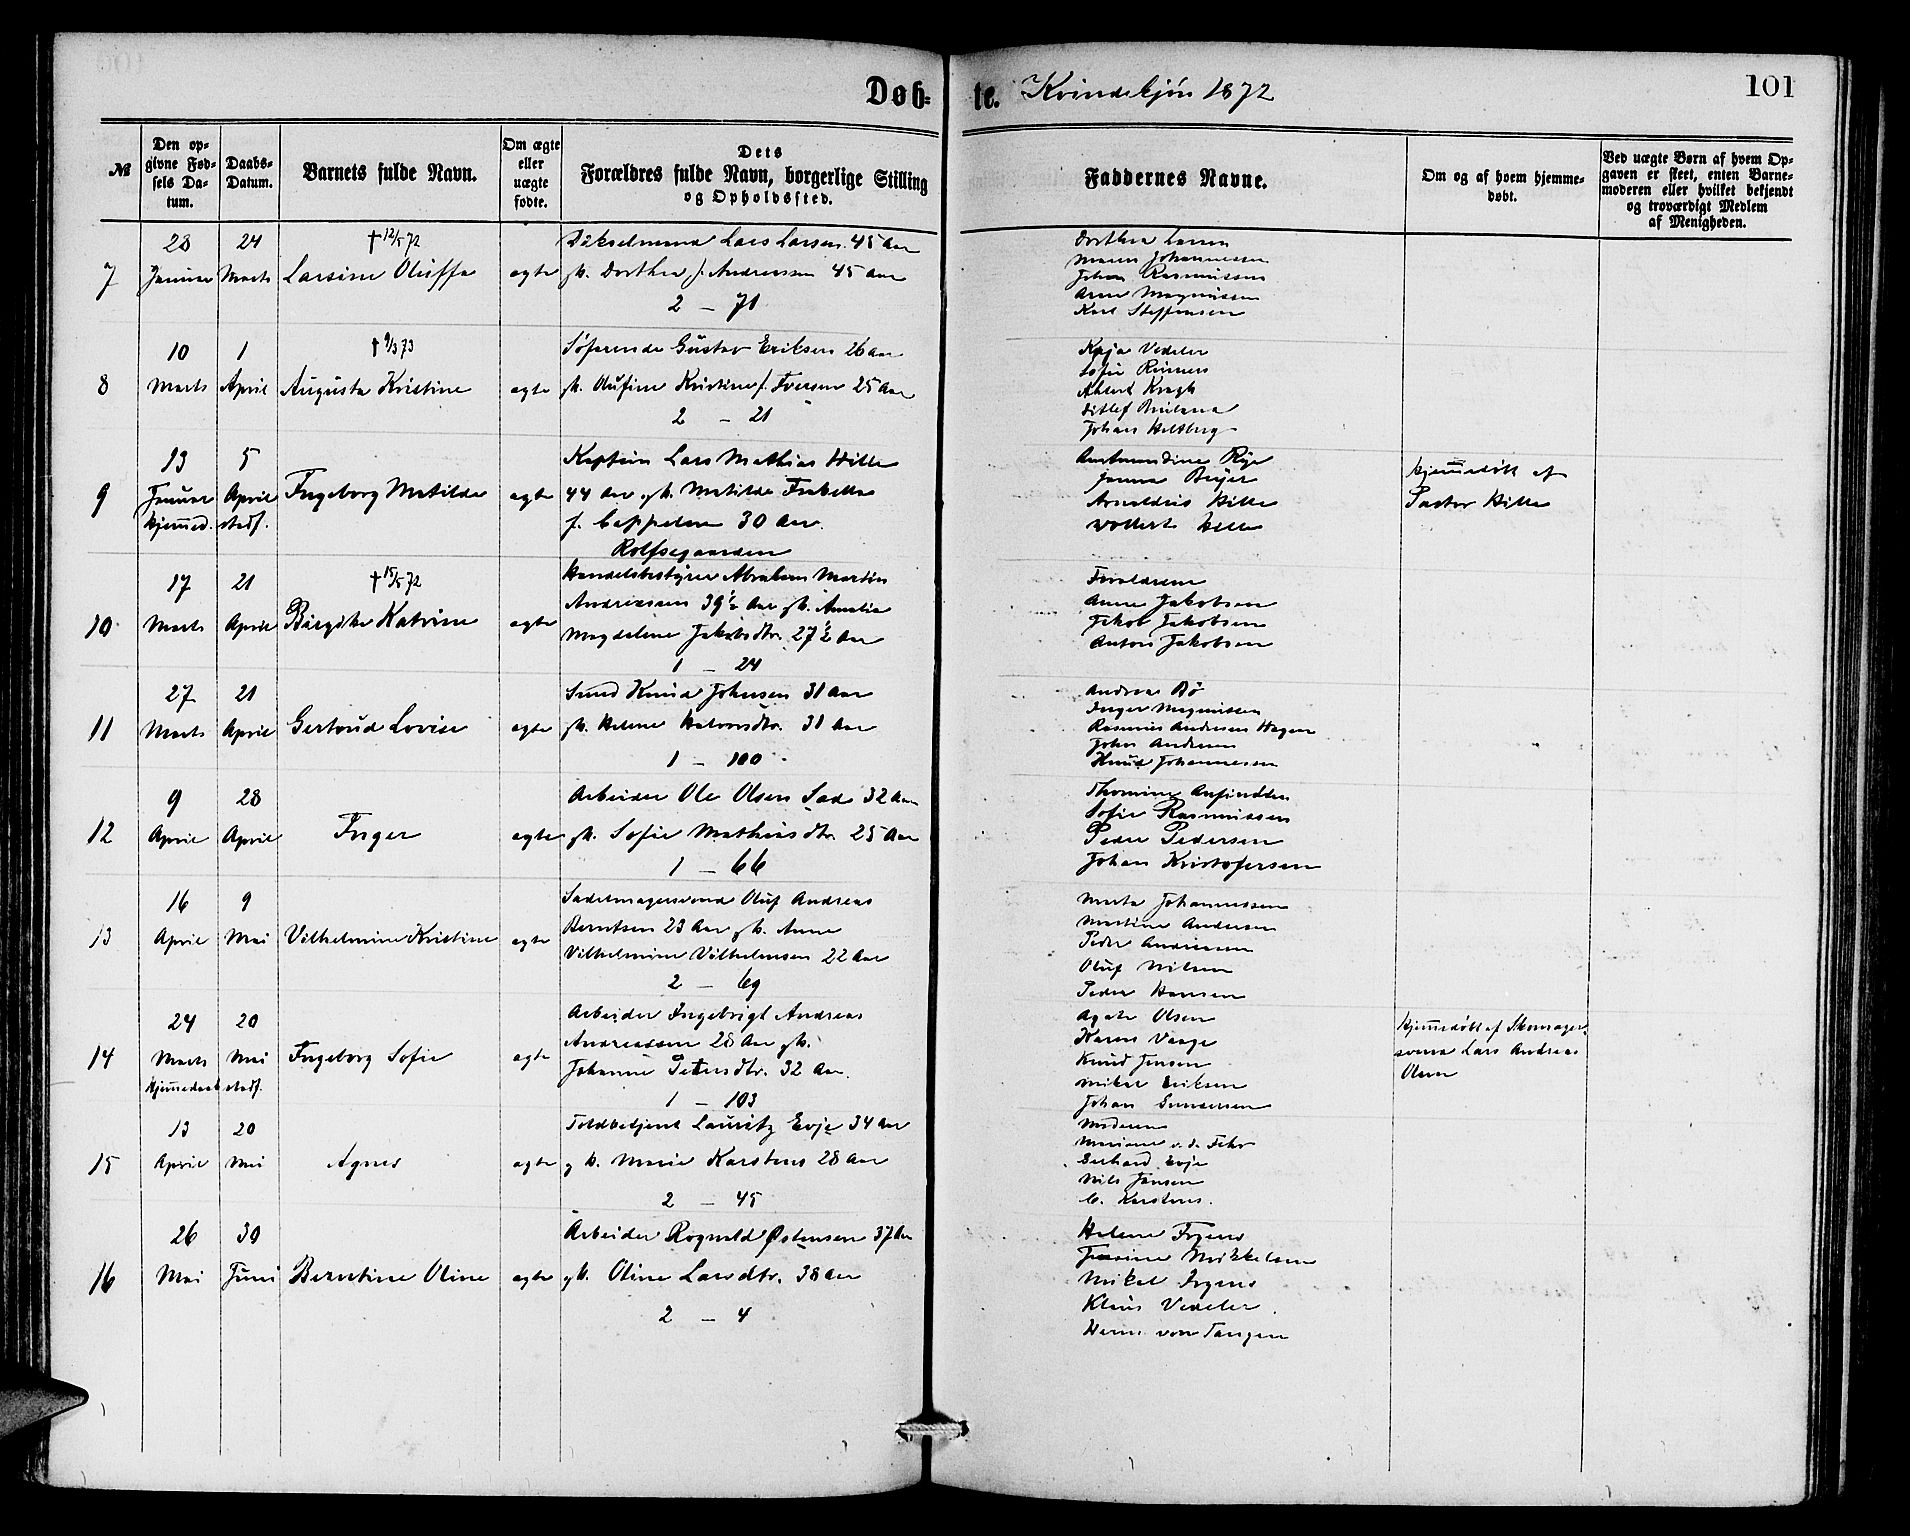 Døb- te. Kvindekjøn 1872
101
№
Den opgivne Fødsels Datum.
Daabs-Datum.
Barnets fulde Navn.
Om ægte eller uægte fødte.
Dets Forældres fulde Navn, borgerlige Stilling og Opholdssted.
Faddernes Navne.
Om og af hvem hjemmedøbt.
Ved uægte Børn af hvem Opgaven er skeet, enten Barnemoderen eller hvilket bekjendt og troværdigt Medlem af Menigheden.
7
28 Januar
24 Marts
† 12/5 72
Larsine Oluffa
ægte
Lars Larsen 45 Aar
gk. Dorthea f. Andreassen 45 Aar
2 - 71
Dorthea Larsen
Maren Johannessen
Johan Rasmussen
Arne Magnussen
Karl Steffensen
8
10 Marts
1 April
† 9/3 73
Augusta Kristine
ægte
Søfarende Gustav Eriksen 26 Aar
gk. Olufine Kristine f. Iversen 25 Aar
2 - 21
Kaja Vedeler
Sofie
Ahlert Kragh
Ditlef
Johan Heltberg
9
13 Januar hjemmed.
5 April stadf.
Ingeborg Matilde
ægte
Kaptein Lars Mathias Hille
44 Aar gk. Matilde Isabella
f. Cappelen 30 Aar.
Rolfsegaarden
Amtmandinne Rye
Beyer
Hille
Vollert Hille
hjemmedøbt af
Pastor Hille
10
17 Marts
21 April
† 15/5 72
Birgitte Katrine
ægte
Handelsbestyrer Abraham Martin
Andreassen 39½ Aar gk. Amalia
Magdalene Jakobsdtr. 27½ Aar
1 - 24
Forældrene
Anne Jakobsen
Jakob Jakobsen
Anton Jakobsen
11
27 Marts
21 April
Gertrud Lovise
ægte
Smed Knud Johnsen 31 Aar
gk. Helene Halvorsdtr. 31 Aar
1 - 100
Andrea Bø
Inger Magnussen
Rasmus Andersen Hagen
John Andersen
Knud Johannesen
12
9 April
28 April
Inger
ægte
Arbeider Ole Olsen 32 Aar
gk. Sofie Mathiasdtr. 25 Aar
1 - 66
Thomine Anfindsen
Sofie Rasmussen
Peder Pedersen
Johan Kristofersen
13
16 April
9 Mai
Vilhelmine Kristine
ægte
Sadelmagersvend Oluf Andreas
Berntsen 23 Aar gk. Anne
Vilhelmine Vilhelmsen 22 Aar
2 - 69
Marta Johannessen
Martine Andersen
Peder Andersen
Oluf Nilsen
Peder Hansen
14
24 Marts hjemmedøbt
20 Mai stadf.
Ingeborg Sofie
ægte
Arbeider Ingebrigt Andreas
Andreassen 28 Aar gk.
Johanne Petersdtr. 32 Aar.
1 - 103
Agate Olsen
Karen Vaage
Knud Jensen
Mikal Eriksen
Johan
hjemmedøbt af Skomager-
svend Lars Andreas
Olsen
15
13 April
20 Mai
Agnes
ægte
Toldbetjent Lauritz Evje 34 Aar
gk. Marie Karstens 28 Aar
2 - 45
Moderen
Mariane v. d. Fehr
Gerhard Evje
Nils Jansen
C. Karstens.
16
26 Mai
30 Juni
Berntine Oline
ægte
Arbeider Rognald Østensen 37 Aar
gk. Oline Larsdtr. 38 Aar
2 - 4
Helene Irgens
Mikkelsen
Mikal Irgens
Klaus Vedeler.
von Tangen